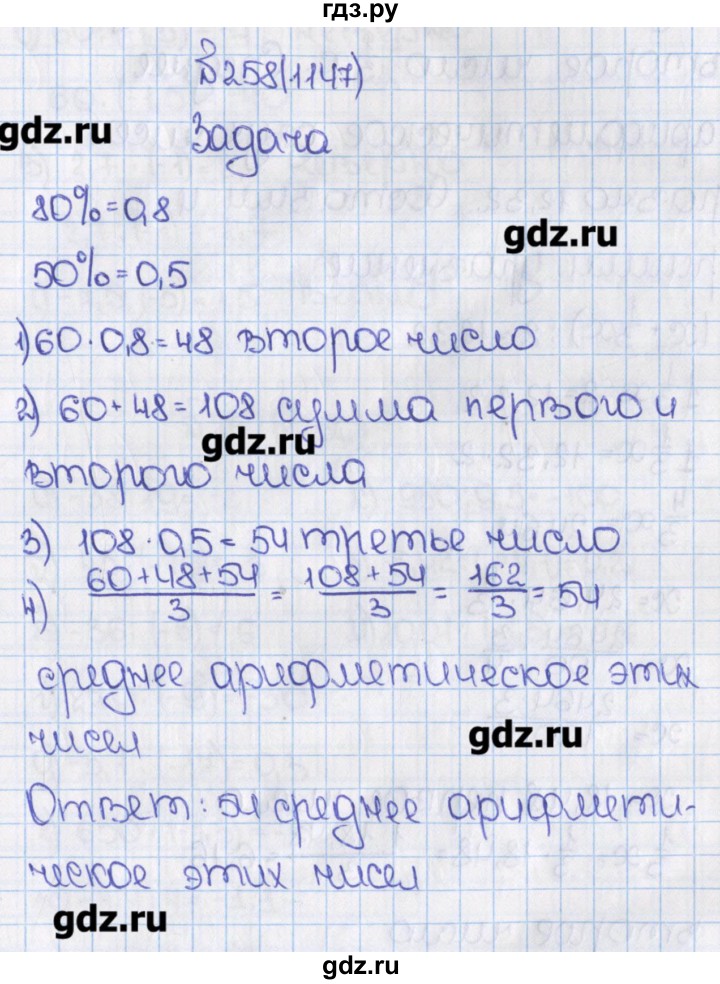 гдз.ру
№258(1147)
gdz.ru
Задача
80%=0,8
gdz.ru
50%=0,5
1) 60·0,8=48 второе число
2) 60+48=108 сумма первого и
gdz.ru
второго числа
3) 108·0,5=54 третье число
4) (60+48+54)/3 = (108+54)/3 = 162/3 = 54
среднее арифметическое этих
чисел
gdz.ru
Ответ: 54 среднее арифмети-
ческое этих чисел
gdz.ru
gdz.ru